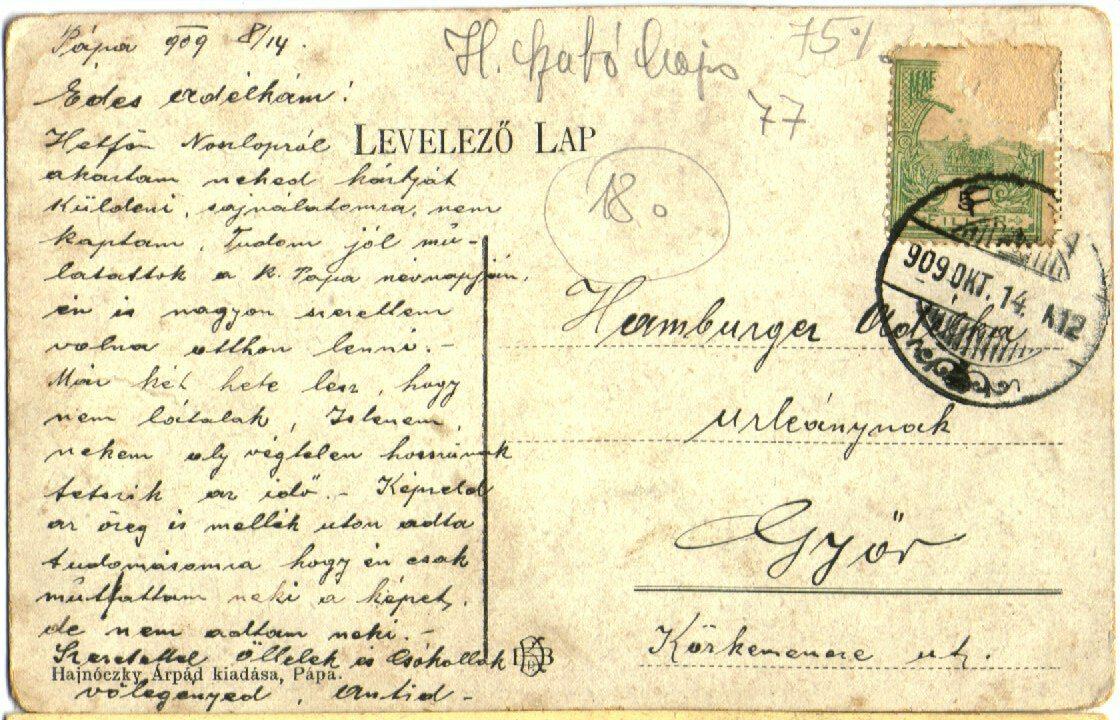 Pápa 909 8/14.
H. Szabó Lajos
75%
77
Édes Adélkám!
LEVELEZŐ LAP
Hétfőn Noszlopról
akartam neked kártyát
küldeni, sajnálatomra, nem
kaptam. Tudom jól mú-
lattatok a K. Papa névnapján,
én is nagyon szerettem
volna otthon lenni.-
Már két hete lesz, hogy
nem látalak, Istenem,
nekem oly végtelen hosszúnak
tetszik az idő.- Képzeld
az öreg is mellék uton adta
tudomásomra hogy én csak
mútattam neki a képet,
de nem adtam neki.-
Szeretettel Öllelek és Csókollak
vőlegényed, Antid-
18.
5
909 OKT. 14. K12
Hamburger Adélka
urleánynak
Győr
Körkemence utz.
Hajnóczky Árpád kiadása, Pápa.